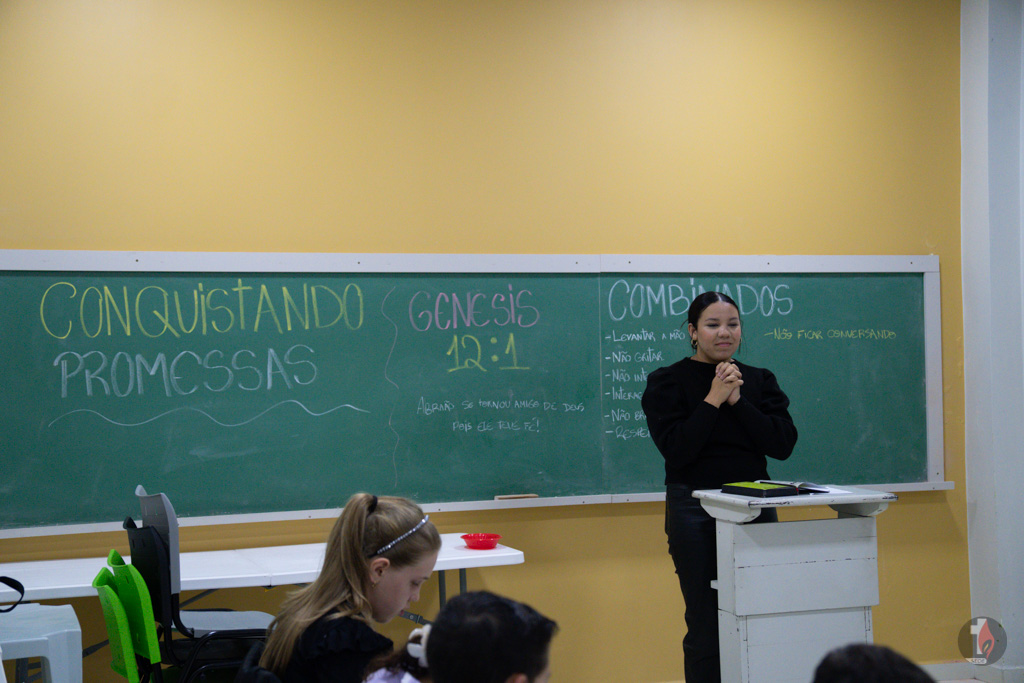 CONQUISTANDO
PROMESSAS
GENESIS
12:1
ABRAÃO SE TORNOU AMIGO DE DEUS
POIS ELE TEVE FÉ!
COMBINADOS
- LEVANTAR A MÃO
- NÃO GRITAR
- NÃO
-
- NÃO
-
- NÃO FICAR CONVERSANDO